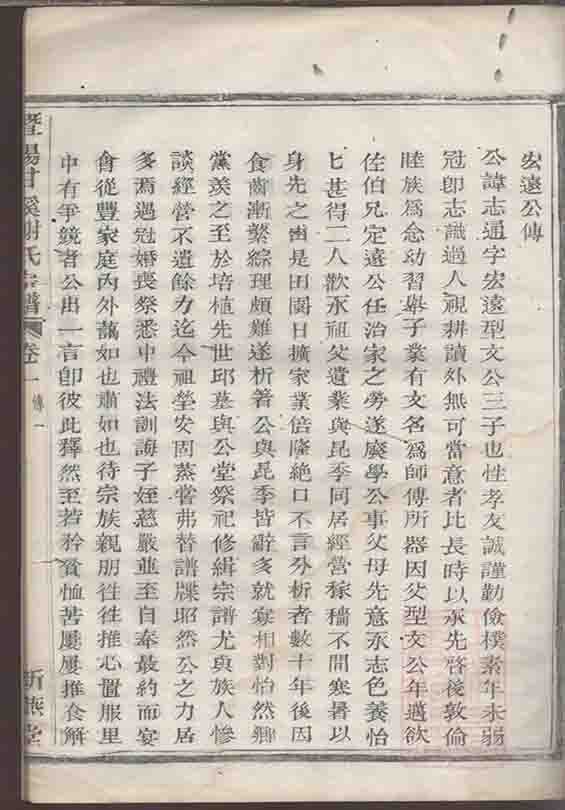 宏遠公傳
公諱志通字宏遠型文公三子也性孝友誠謹勤儉樸素年未弱
冠卽志識過人視耕讀外無可當意者比長時以承先啓後敦倫
睦族爲念幼習舉子業有文名爲師傅所器因父型文公年邁欲
佐伯兄定遠公任治家之勞遂廢學公事父母先意承志色養怡
匕甚得二人歡承祖父遺業與昆季同居經營稼穡不間寒暑以
身先之由是田園日擴家業倍隆絶口不言分析者數十年後因
食齒漸繁綜理頗難遂析箸公與昆季皆辭多就寡相對怡然鄉
黨羨之至於培植先世邱墓與公堂祭祀修緝宗譜尤與族人慘
談經營不遺餘力迄今祖塋安固蒸嘗弗替譜牒昭然公之力居
多焉遇冠婚喪祭悉中禮法訓誨子姪慈嚴並至自奉最約而宴
會從豐家庭內外藹如也肅如也待宗族親朋徃徃推心置服里
中有爭競者公出一言卽彼此釋然至若矜貧恤苦屢屢推食解
暨陽甘溪謝氏宗譜 卷一 傳 一